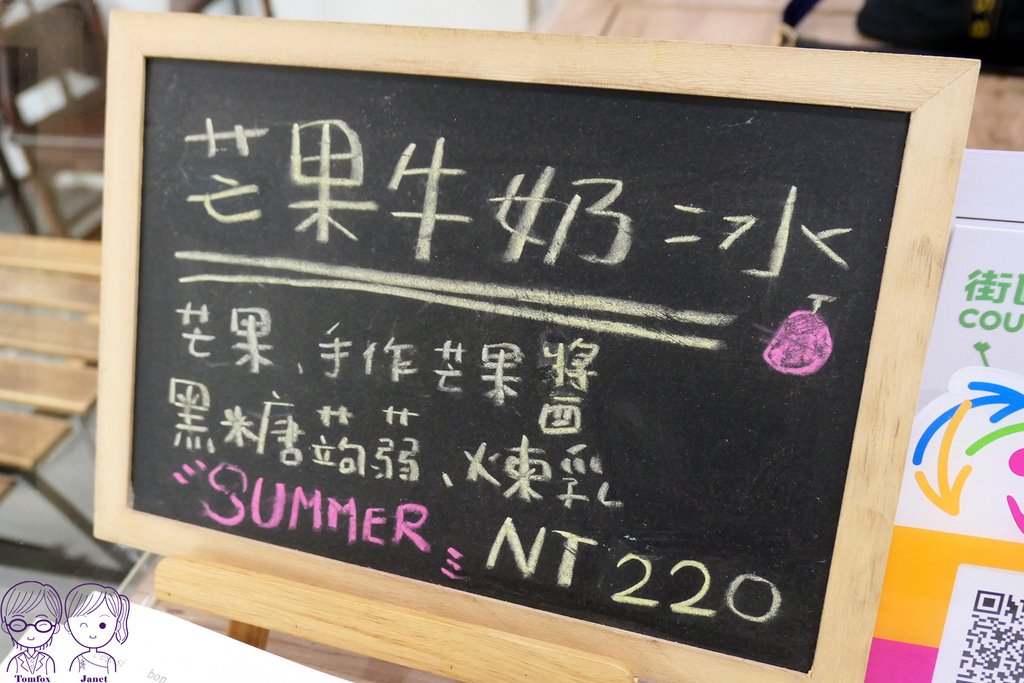 芒果牛奶冰
芒果、手作芒果醬
黑糖蒟蒻、煉乳
SUMMER
NT 220
街
COU
Tomfox
Janet
bon